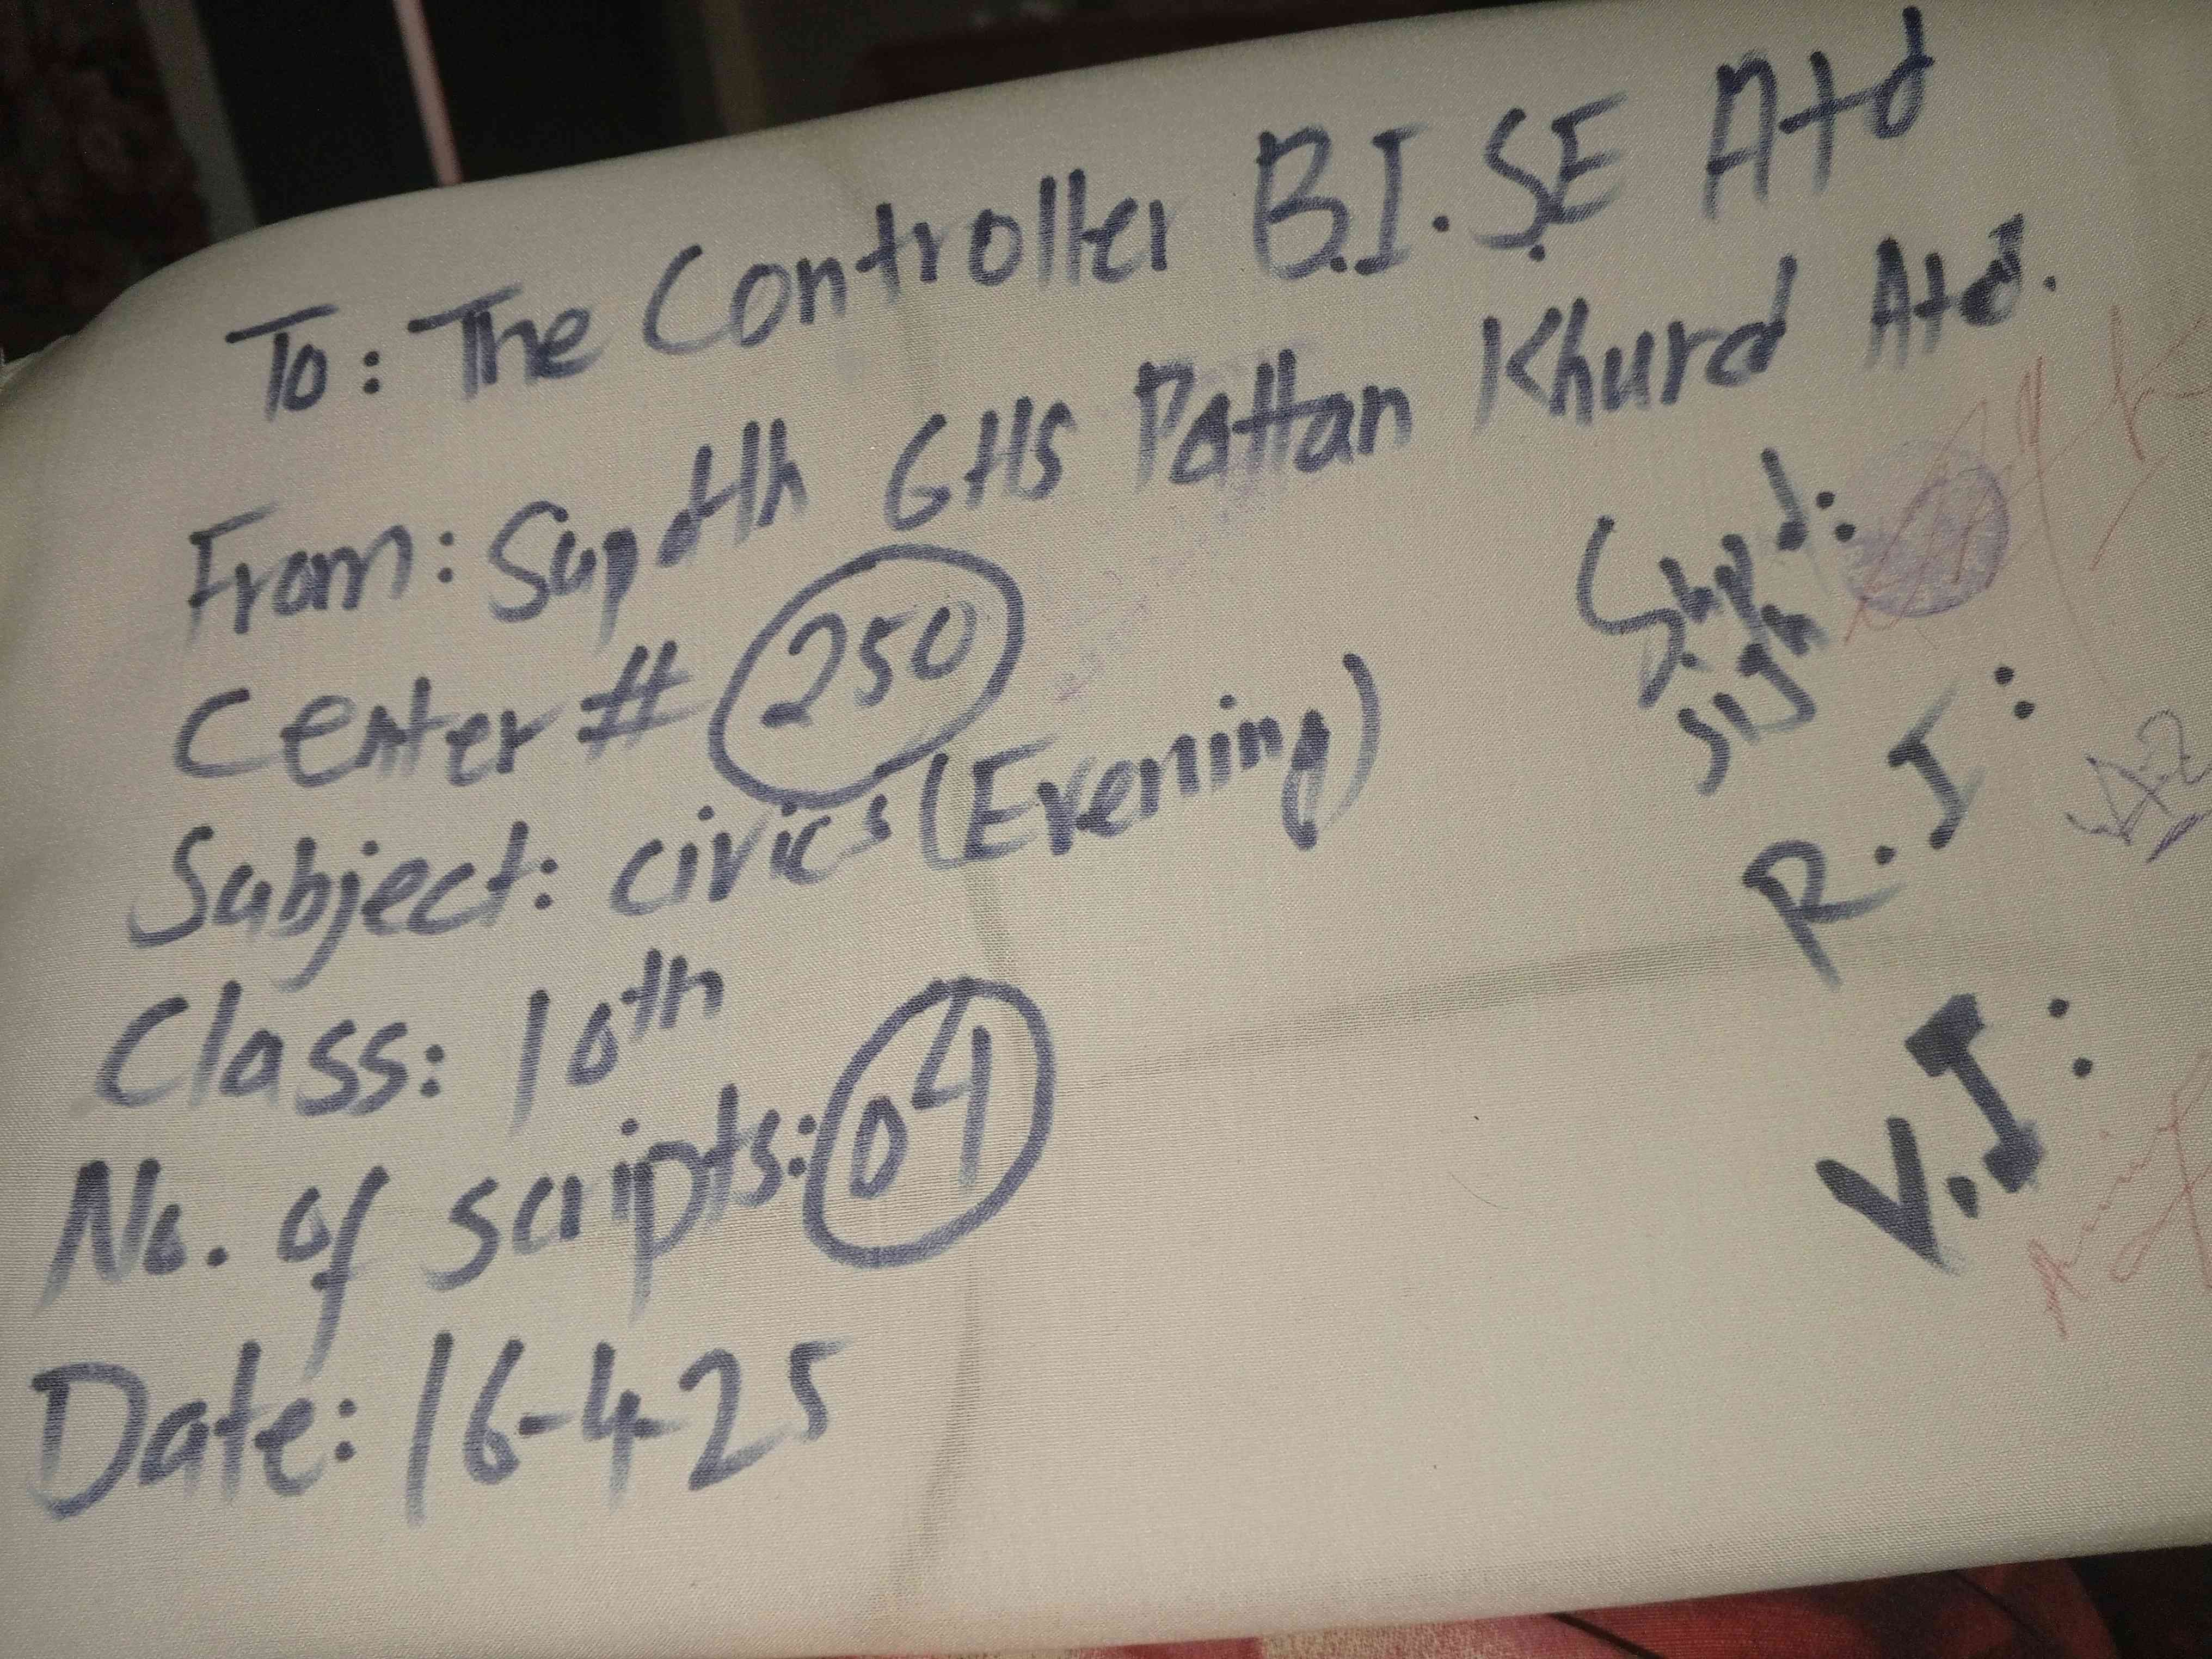 To: The Controller B.I.S.E Atd
From: Supdtt GHS Pattan Khurd Atd.
Center # 250
Subject: civics (Evening)
Class: 10th
No. of scripts: 04
Date: 16-4-25
Supd:
sign
R.I:
V.I: